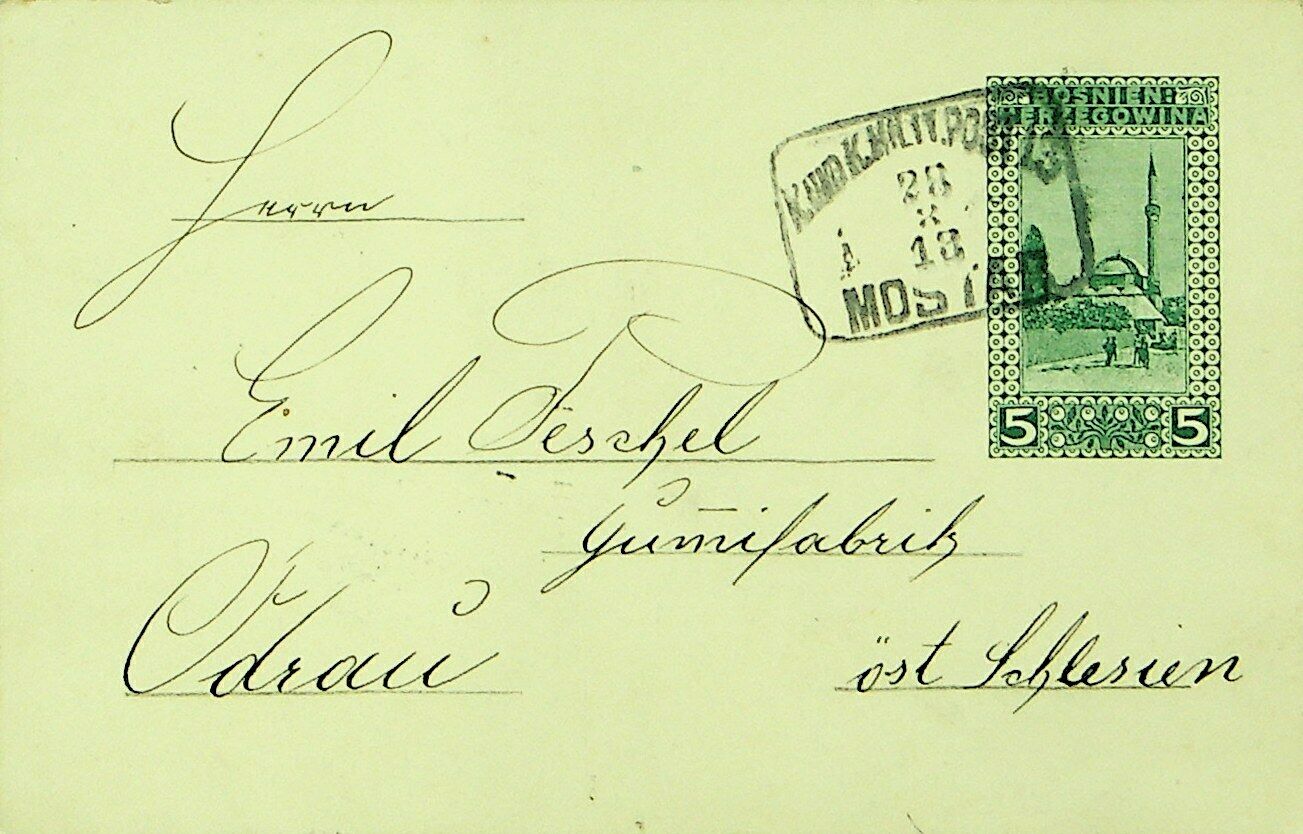 BOSNIEN-
HERZEGOWINA
K.UND K.MILIT.POST
28
X
13
MOSTAR
5 5
Herrn
Emil Teschel
Gum̅ifabrik
Odrau
öst Schlesien